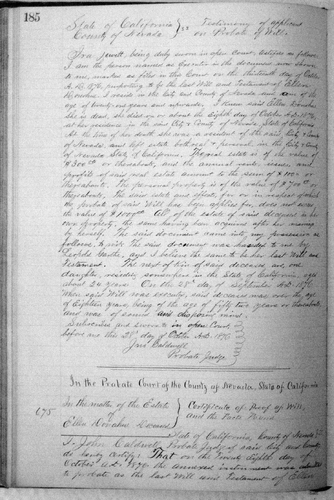 185
State of California } ss Testimony of applicant
County of Nevada } on Probate of Will.
being duly sworn in open Court, testifies as follows:
I am the person named as Executor in the document now shown
to me, marked as filed in this Court on the thirteenth day of October
A.D. 1876, purporting to be the Last Will and Testament of Ellen
I reside in the City and County of Nevada and am of the
age of twenty one years and upwards. I knew said Ellen
She is dead, she died on or about the eighth day of October A.D. 1876
at her residence in the said City & County of Nevada, State of California
At the time of her death she was a resident of the said City & County
of Nevada, and left estate both real & personal in the City & County
of Nevada State of California. The real estate is of the value of
or thereabouts, and the annual rents, issues and
profits of said real estate amount to the sum of $100 or
thereabouts. The personal property is of the value of $700 or
thereabouts. The said and effects, for or in respect of which
the probate of said Will has been applied for, does not exceed
the value of All of the estate of said deceased is
property, the same having been acquired after her marriage
by The said document came into my possession as
follows, to wit: The said document was handed to me by
and I believe the same to be her last Will and
Testament. The next of kin of said deceased are, one
daughter, residing somewhere in the State of California, aged
about 24 years. On the day of September A.D. 1876
When said Will was executed, said deceased was over the age
of Eighteen years, being of the age of fifty two years or thereabouts
and was of sound and disposing mind.
Subscribed and sworn to in open Court,
before me this day of October A.D. 1876
Jno. Caldwell
Probate Judge
In the Probate Court of the County of Nevada, State of California
675
In the matter of the Estate } Certificate of Proof of Will,
of } and the Facts Found
Ellen Deceased }
State of California, County of Nevada
I, John Caldwell, Probate Judge of said County
do hereby certify: That on the day of
October A.D. 1876 the annexed instrument was admitted
to probate as the Last Will and Testament of Ellen